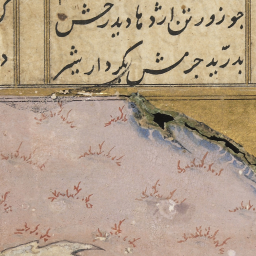 چو زور تن اژدها دید رخش
بدرّید چرمش بکردار شیر